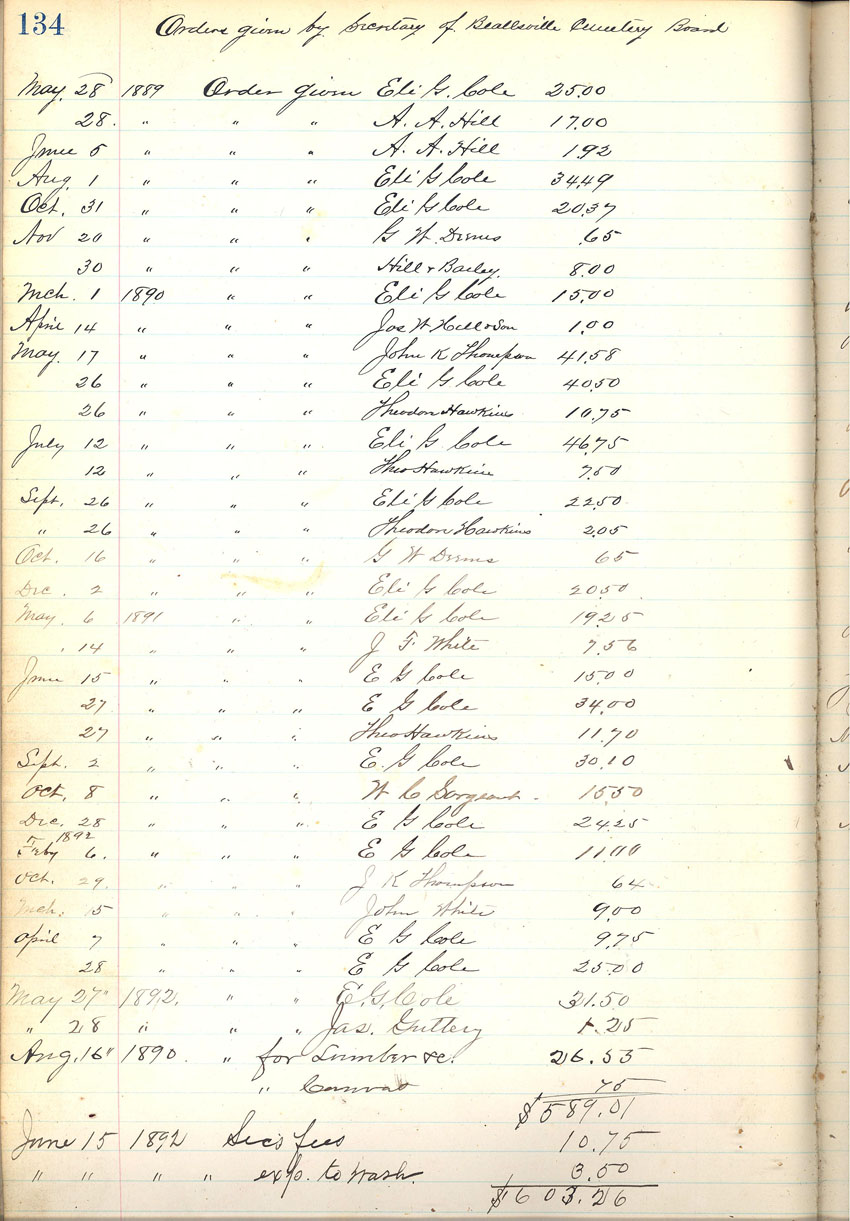 134 Orders given by Secretary of Beallsville Cemetery Board
May. 28 1889 Order given Eli G. Cole 25.00
28. " " " A. A. Hill 17.00
June 5 " " " A. A. Hill 1.92
Aug. 1 " " " Eli G Cole 34.49
Oct. 31 " " " Eli G Cole 20.37
Nov 20 " " " G W. Deems .65
30 " " " Hill & Bailey. 8.00
Mch. 1 1890 " " Eli G Cole 15.00
April 14 " " " Jas W Hill & Son 1.00
May. 17 " " " John K Thompson 41.58
26 " " " Eli G Cole 40.50
26 " " " Theodore Hawkins 10.75
July 12 " " " Eli G. Cole 46.75
12 " " " Theo Hawkins 7.50
Sept. 26 " " " Eli G Cole 22.50
" 26 " " " Theodore Hawkins 2.05
Oct. 16 " " " G W Deems 65
Dec. 2 " " " Eli G Cole 20.50
May. 6 1891 " " Eli G Cole 19.25
" 14 " " " J F. White 7.56
June 15 " " " E G Cole 15.00
27 " " " E G Cole 34.00
27 " " " Theo Hawkins 11.70
Sept. 2 " " " E. G Cole 30.10
Oct. 8 " " " W C Sargeant. 15.50
Dec. 28 " " " E G Cole 24.25
1892
Feby 6. " " " E G Cole 11.00
Oct. 29. " " " J K Thompson 64
Mch. 5 " " " John White 9.00
April 7 " " " E G Cole 9.75
28 " " " E G Cole 25.00
May 27" 1892. " " E. G. Cole 31.50
" 28 " " " Jas. Guttery 1.25
Aug. 16" 1890. " for Lumber &c. 26.55
" Canvas 75
$589.01
June 15 1892 Sec's fees 10.75
" " " " exp. to Wash. 3.50
$603.26